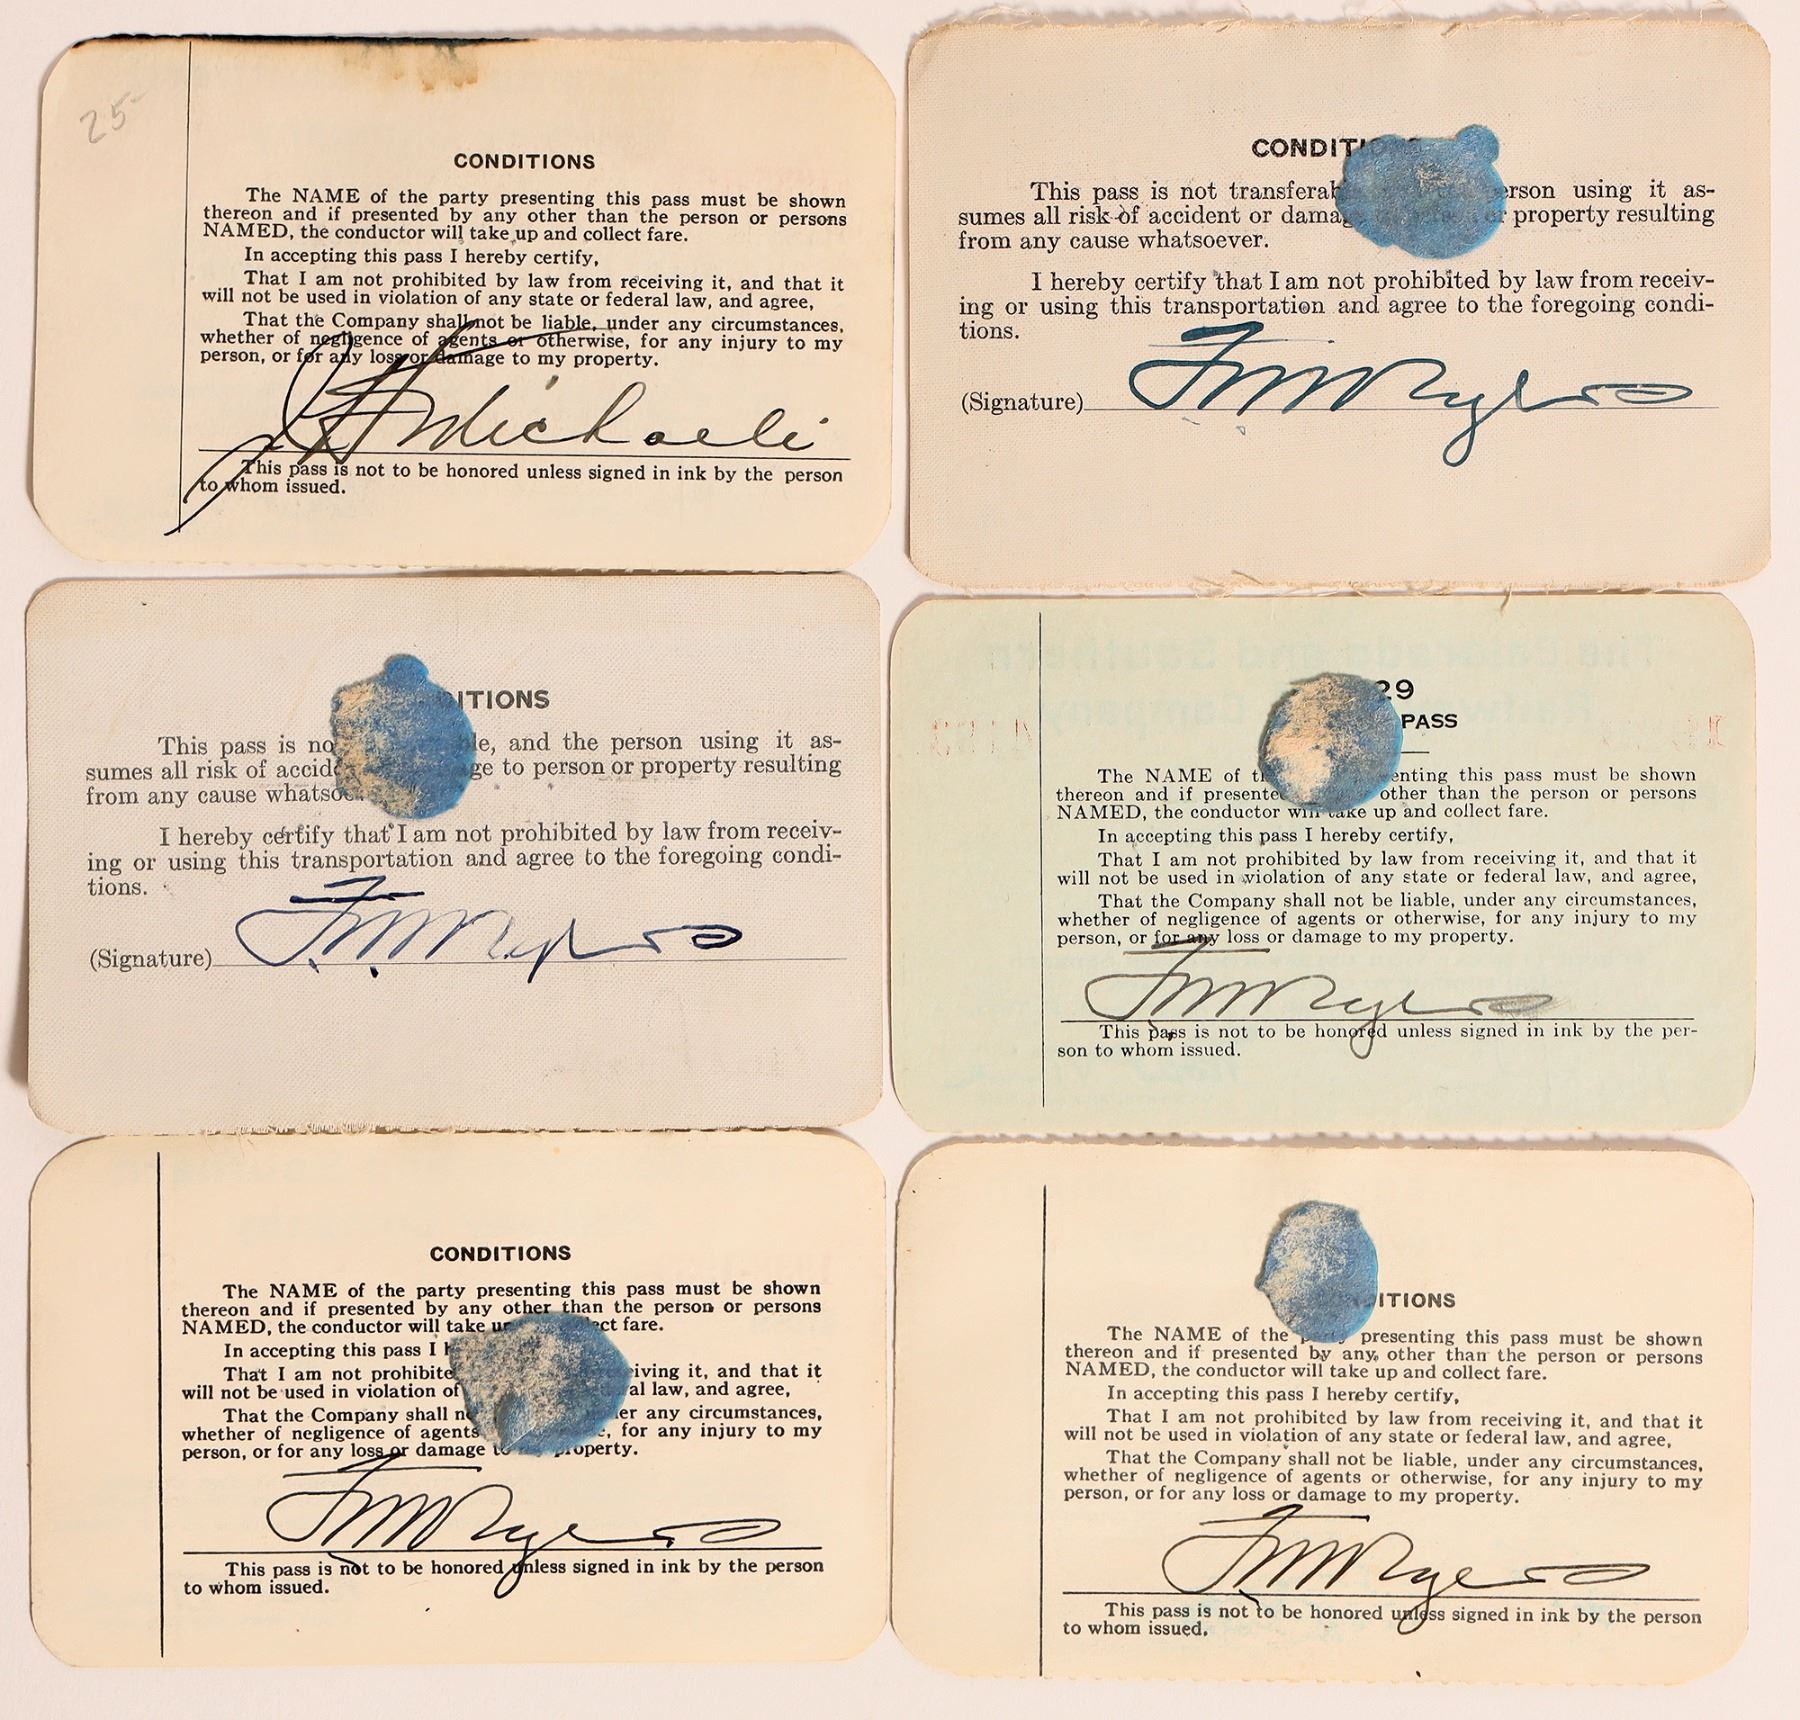 25-
CONDITIONS
The NAME of the party presenting this pass must be shown
thereon and if presented by any other than the person or persons
NAMED, the conductor will take up and collect fare.
In accepting this pass I hereby certify,
That I am not prohibited by law from receiving it, and that it
will not be used in violation of any state or federal law, and agree,
That the Company shall not be liable, under any circumstances,
whether of negligence of agents or otherwise, for any injury to my
person, or for any loss or damage to my property.
This pass is not to be honored unless signed in ink by the person
to whom issued.
CONDITI
This pass is not transferab erson using it as-
sumes all risk of accident or damag or property resulting
from any cause whatsoever.
I hereby certify that I am not prohibited by law from receiv-
ing or using this transportation and agree to the foregoing condi-
tions.
(Signature)
ITIONS
This pass is no le, and the person using it as-
sumes all risk of accid ge to person or property resulting
from any cause whatso
I hereby certify that I am not prohibited by law from receiv-
ing or using this transportation and agree to the foregoing condi-
tions.
(Signature)
29
PASS
The NAME of t enting this pass must be shown
thereon and if presente other than the person or persons
NAMED, the conductor will take up and collect fare.
In accepting this pass I hereby certify,
That I am not prohibited by law from receiving it, and that it
will not be used in violation of any state or federal law, and agree,
That the Company shall not be liable, under any circumstances,
whether of negligence of agents or otherwise, for any injury to my
person, or for any loss or damage to my property.
This pass is not to be honored unless signed in ink by the per-
son to whom issued.
CONDITIONS
The NAME of the party presenting this pass must be shown
thereon and if presented by any other than the person or persons
NAMED, the conductor will take u ect fare.
In accepting this pass I h
That I am not prohibite iving it, and that it
will not be used in violation of al law, and agree,
That the Company shall n er any circumstances,
whether of negligence of agents , for any injury to my
person, or for any loss or damage to property.
This pass is not to be honored unless signed in ink by the person
to whom issued.
ITIONS
The NAME of the party presenting this pass must be shown
thereon and if presented by any other than the person or persons
NAMED, the conductor will take up and collect fare.
In accepting this pass I hereby certify,
That I am not prohibited by law from receiving it, and that it
will not be used in violation of any state or federal law, and agree,
That the Company shall not be liable, under any circumstances,
whether of negligence of agents or otherwise, for any injury to my
person, or for any loss or damage to my property.
This pass is not to be honored unless signed in ink by the person
to whom issued.